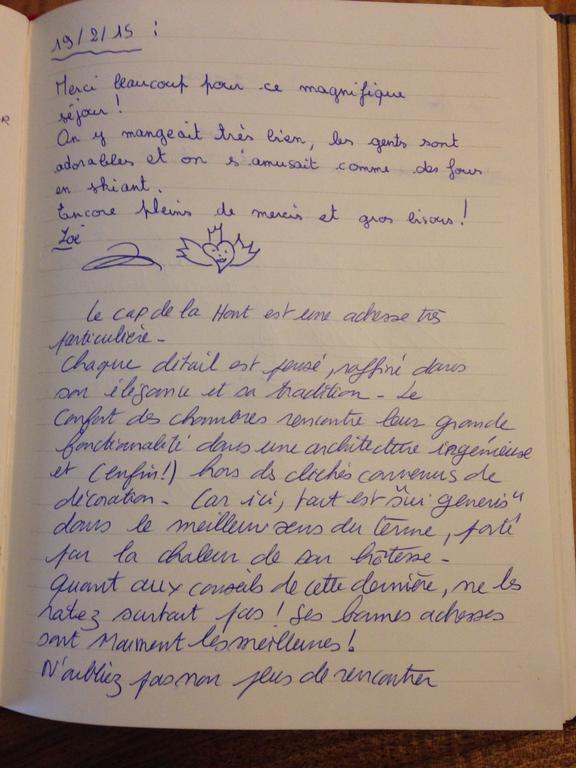 19/2/15 :
Merci beaucoup pour ce magnifique
séjour !
On y mangeait très bien, les gents sont
adorables et on s'amusait comme des fous
en skiant.
Encore pleins de mercis et gros bisous !
Zoé
Le cap de la Hont est une adresse très
particulière -
Chaque détail est pensé, raffiné dans
son élégance et sa tradition - Le
Confort des chambres rencontre leur grande
fonctionnalité dans une architecture ingénieuse
et (enfin!) hors des clichés convenus de
décoration - Car ici, tout est "sui generis"
dans le meilleur sens du terme, porté
par la chaleur de son hôtesse -
Quant aux conseils de cette dernière, ne les
ratez surtout pas ! Ses bonnes adresses
sont vraiment les meilleures !
N'oubliez pas non plus de rencontrer